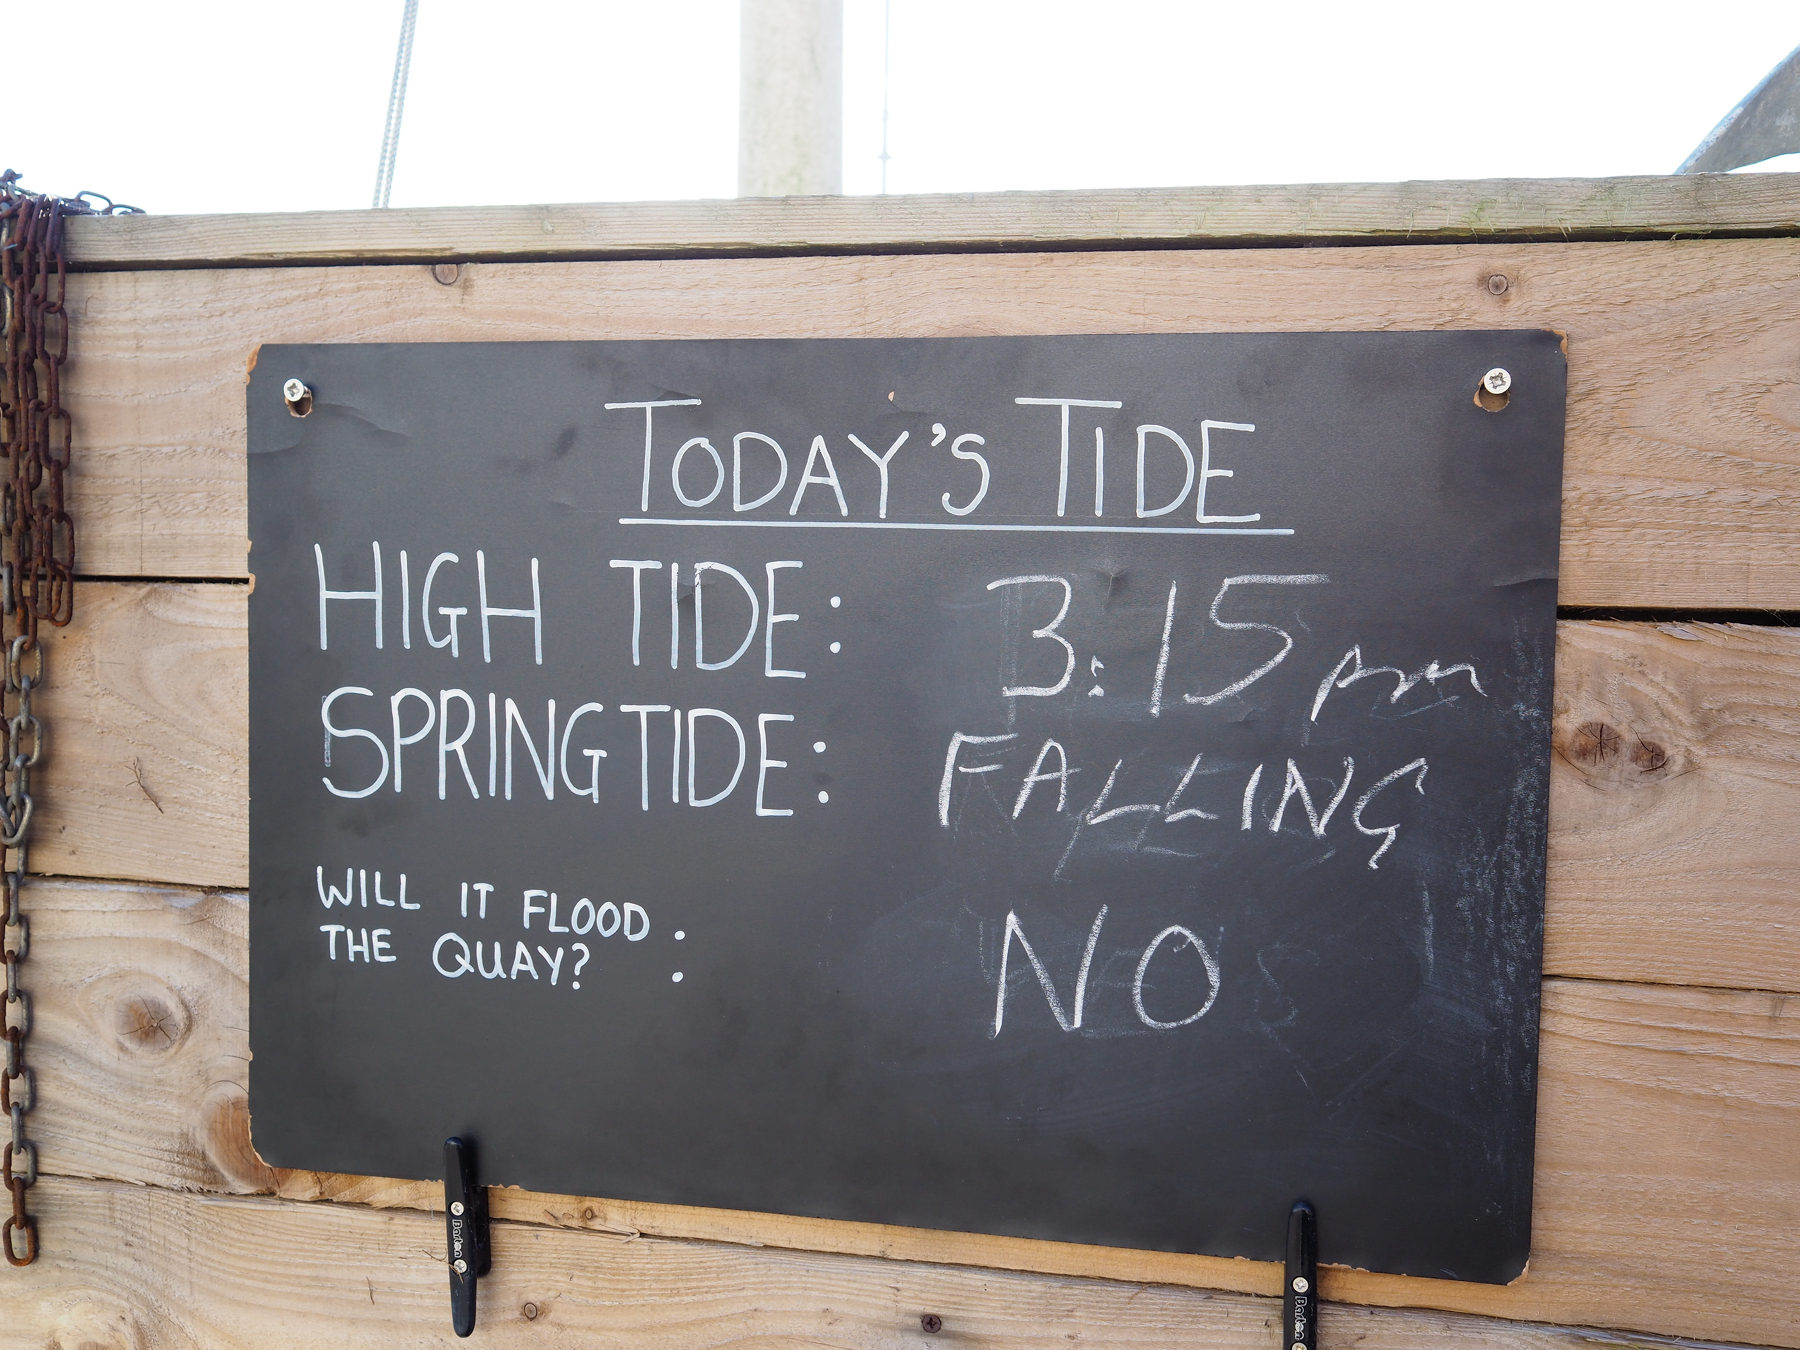 TODAY'S TIDE
HIGH TIDE: 3:15 pm
SPRING TIDE: FALLING
WILL IT FLOOD
THE QUAY? : NO
Barton
Barton